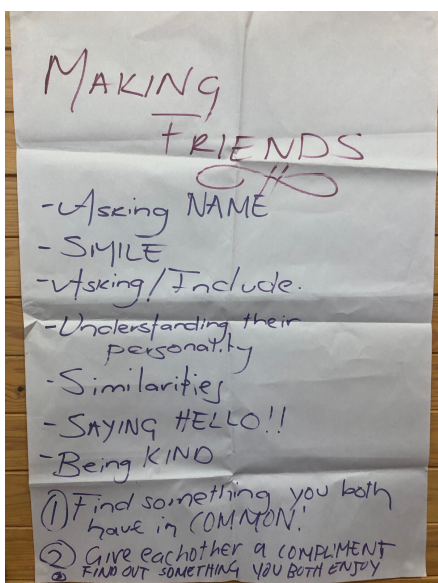 MAKING
FRIENDS
- Asking NAME
- SMILE
- Asking/Include.
- Understanding their
personality
- Similarities
- SAYING HELLO!!
- Being KIND
① Find something you both
have in COMMON!
② Give eachother a COMPLIMENT
FIND OUT SOMETHING YOU BOTH ENJOY